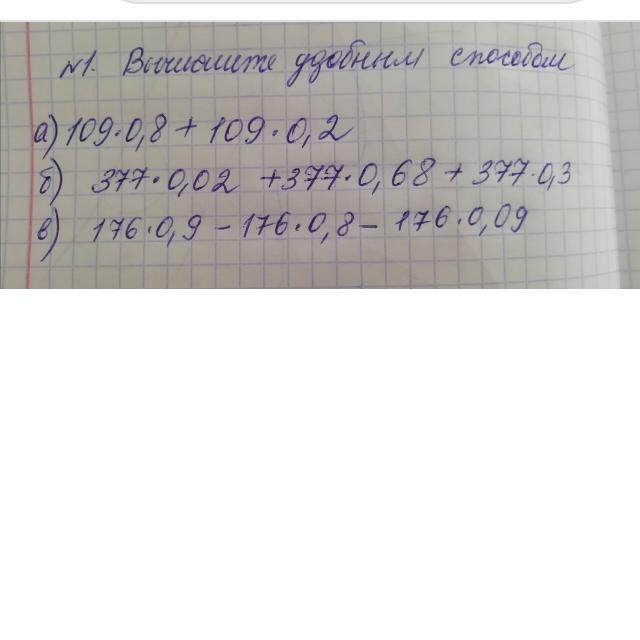 №1. Вычислите удобным способом
а) 109·0,8 + 109·0,2
б) 377·0,02 +377·0,68 + 377·0,3
в) 176·0,9 - 176·0,8 - 176·0,09